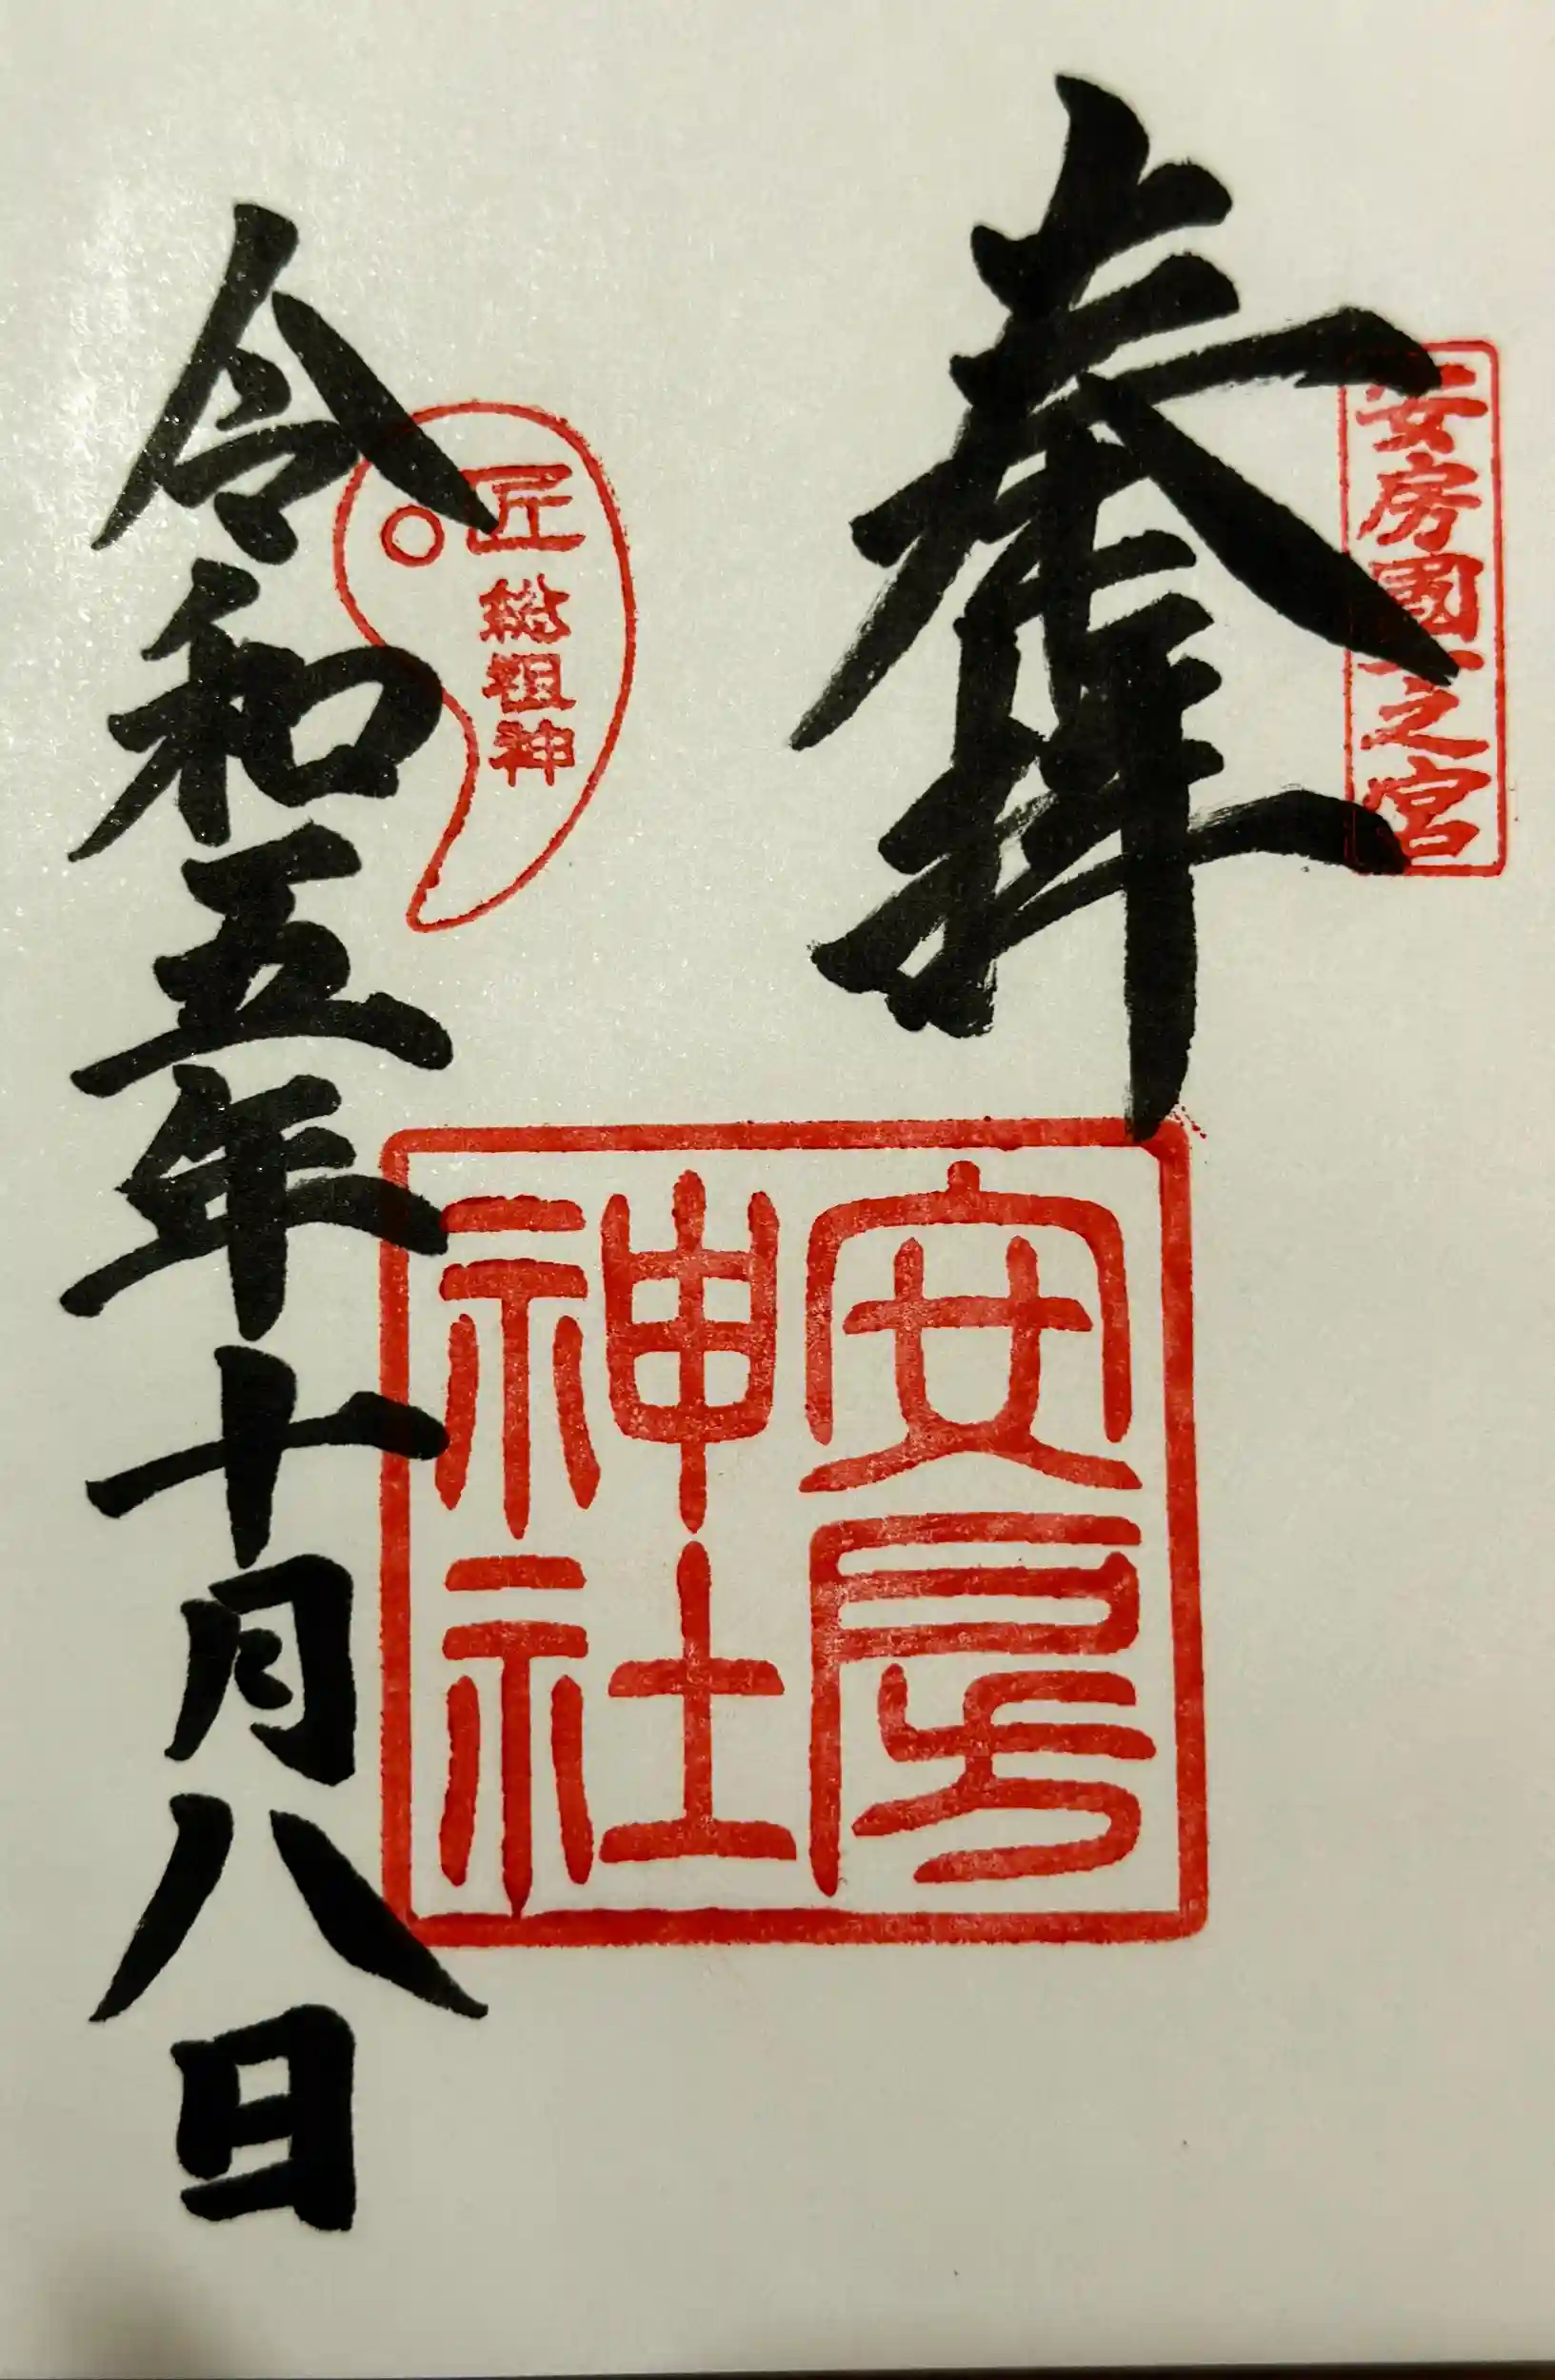 奉拝
安房國一之宮
安房
神社
匠総祖神
令和五年十月八日